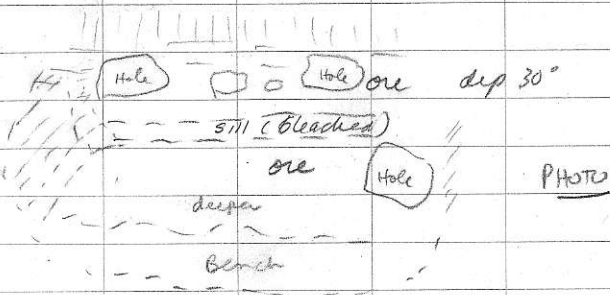 Hole Hole ore dip 30°
sill (bleached)
ore Hole PHOTO
deeper
Bench